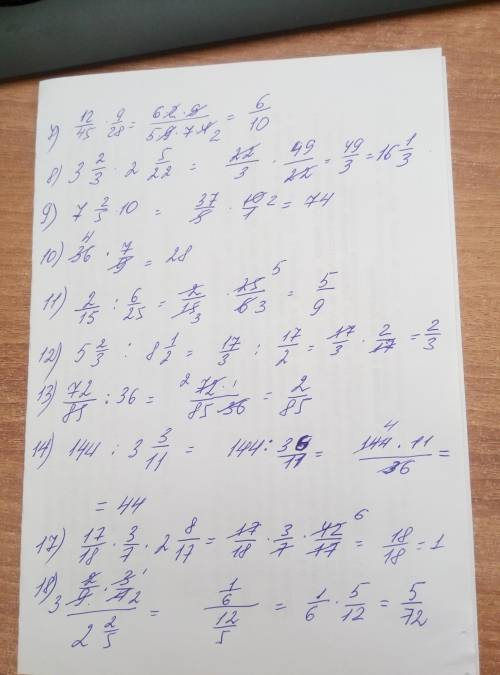 7) 12/45 · 9/28 = 6 2 · 9 / 5 9 · 7 4 2 = 6/10
8) 3 2/3 · 2 5/22 = 22/3 · 49/22 = 49/3 = 16 1/3
9) 7 2/5 · 10 = 37/5 · 10/1 2 = 74
10) 36 4 · 7/9 = 28
11) 2/15 : 6/25 = 2/15 3 · 25/6 3 5 = 5/9
12) 5 2/3 : 8 1/2 = 17/3 : 17/2 = 17/3 · 2/17 = 2/3
13) 72/85 : 36 = 2 72 · 1 / 85 · 36 = 2/85
14) 144 : 3 3/11 = 144 : 36/11 = 4 144 · 11 / 36 =
= 44
17) 17/18 · 3/7 · 2 8/17 = 17/18 · 3/7 · 42/17 6 = 18/18 = 1
18) 3 2/9 · 3/4 2 1 / 2 2/5 = 1/6 / 12/5 = 1/6 · 5/12 = 5/72